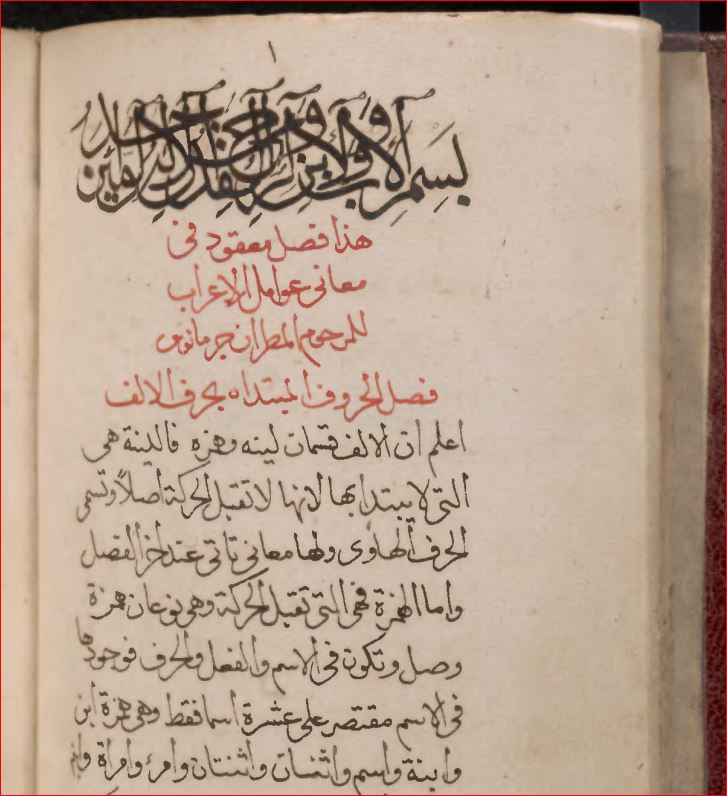 ١
بسم الاب والابن والروح القدس الاله الواحد امين
هذا فصل معقود فى
معانى عوامل الاعراب
للمرحوم المطران جرمانوس
فصل الحروف المبتداه بحرف الالف
اعلم ان الالف قسمان لينه وهمزه فاللينة هى
التى لا يبتدا بها لانها لا تقبل الحركة اصلاً وتسمى
الحرف الهاوى ولها معانى تاتى عند اخر الفصل
واما الهمزة فهى التى تقبل الحركة وهى نوعان همزة
وصل وتكون فى الاسم والفعل والحرف فوجودها
فى الاسم مقتصر على عشرة اسما فقط وهى همزة ابن
وابنة واسم واثنان واثنتان وامرء وامراة